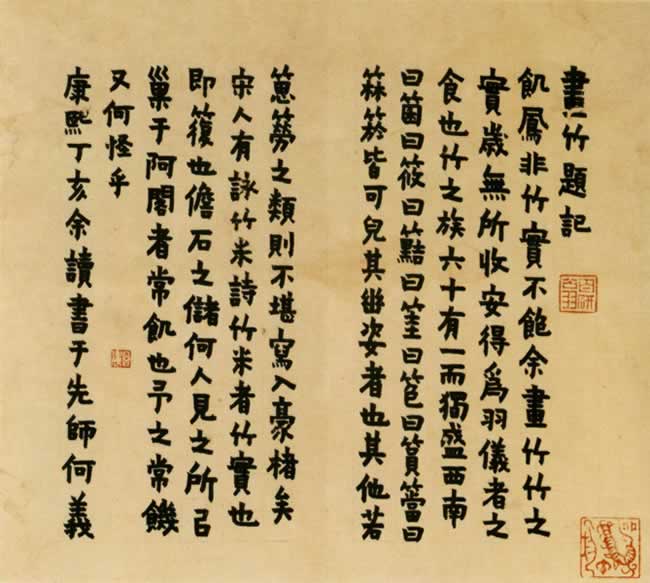 畫竹題記
飢鳳非竹實不飽余畫竹竹之
實歲無所收安得爲羽儀者之
食也竹之族六十有一而獨盛西南
曰箘曰筱曰曰筀曰笆曰篔簹曰
箖箊皆可皃其幽姿者也其他若
簩之類則不堪寫入豪楮矣
宋人有詠竹米詩竹米者竹實也
即也儋石之儲何人見之所㠯
巢于阿閣者常飢也予之常饑
又何怪乎
康熙丁亥余讀書于先師何義